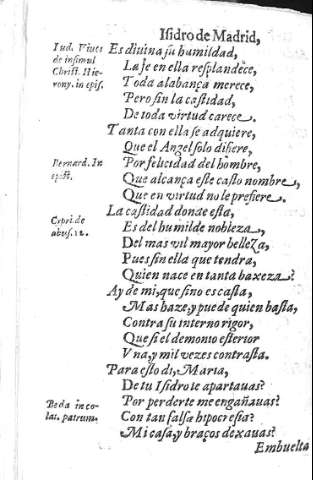 Isidro de Madrid,
Iud. Viues
de insimul
Christ. Hie-
rony. in epis.
Es diuina su humildad,
La fe en ella resplandece,
Toda alabança merece,
Pero sin la castidad,
De toda virtud carece.
Tanta con ella se adquiere,
Que el Angel solo difiere,
Bernard. In
epist.
Por felicidad del hombre,
Que alcança este casto nombre,
Que en virtud no le prefiere.
La castidad donde esta,
Cypri. de
abus. 12.
Es del humilde nobleza,
Del mas vil mayor belleza,
Pues sin ella que tendra,
Quien nace en tanta baxeza?
Ay de mi, que sino es casta,
Mas haze, y puede quien basta,
Contra su interno rigor,
Que si el demonio esterior
Vna, y mil vezes contrasta.
Para esto di, Maria,
De tu Isidro te apartauas?
Beda in co-
lac. patrum.
Por perderte me engañauas?
Con tan falsa hipocresia?
Mi casa, y braços dexauas?
Embuelta